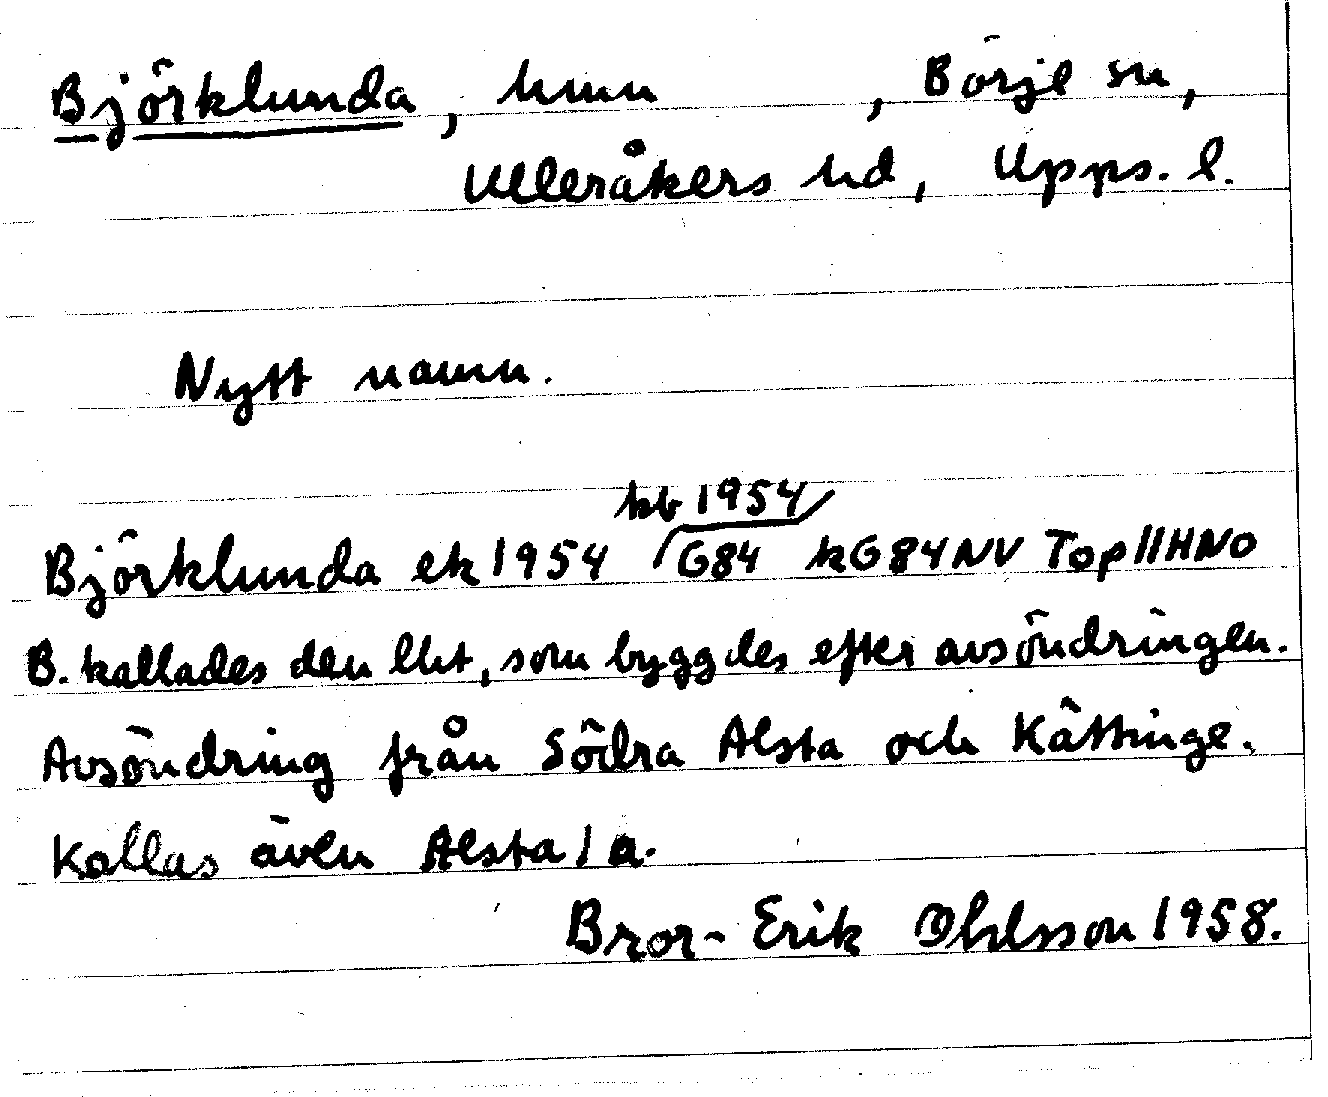 Björklunda, hmn , Börje sn,
Ulleråkers hd, Upps. l.
Nytt namn.
kb 1954
Björklunda ek 1954 G84 kG84NV Top11HNO
B. kallades den lht, som byggdes efter avsöndringen.
Avsöndring från Södra Alsta och Kättinge.
Kallas även Alsta 1 a.
Bror-Erik Ohlsson 1958.